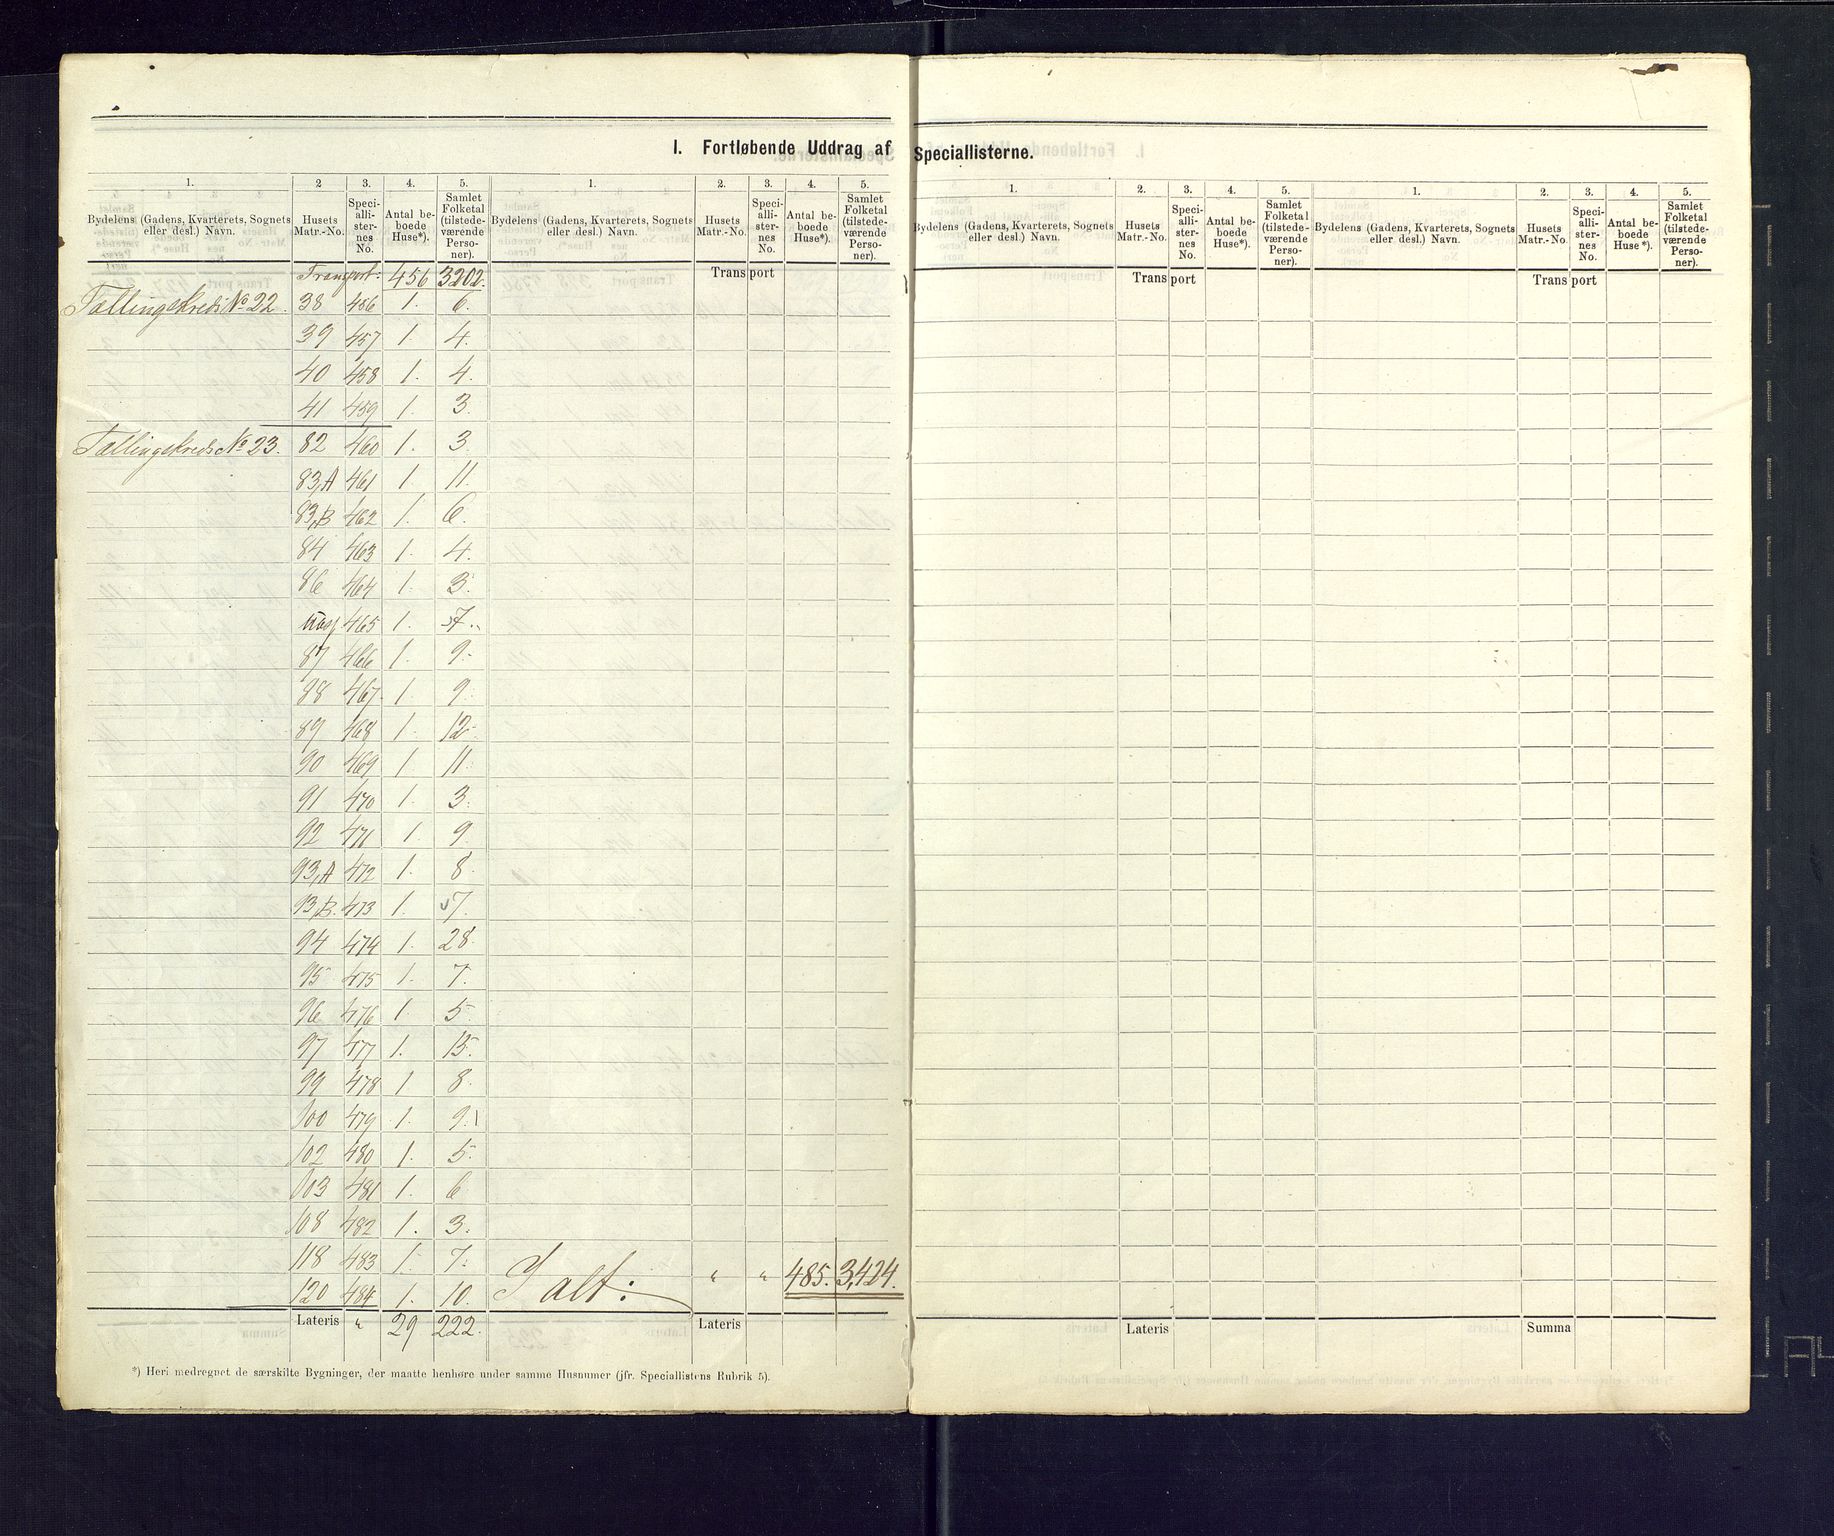 I. Fortløbende Uddrag af Speciallisterne.
1. 2 3. 4. 5. 1. 2. 3. 4. 5.
Bydelens (Gadens, Kvarterets, Sognets eller desl.) Navn. Husets Matr.-No. Speci-alli-ster-nes No. Antal be-boede Huse*). Samlet Folketal (tilstede-værende Perso-ner). Bydelens (Gadens, Kvarterets, Sognets eller desl.) Navn. Husets Matr.-No. Speci-alli-ster-nes No. Antal be-boede Huse*). Samlet Folketal (tilstede-værende Perso-ner).
Transport: 456 3202. Transport
Tællingskreds No 22. 38 456 1. 6.
39 457 1. 4.
40 458 1. 4.
41 459 1. 3.
Tællingskreds No 23. 82 460 1. 3.
83,A 461 1 11.
83,B 462 1. 6.
84 463 1. 4.
86 464 1. 3.
465 1. 7.
87 466 1. 9.
88 467. 1. 9.
89 468 1. 12.
90 469 1 11.
91 470 1. 3.
92 471 1 9.
93,A 472 1. 8.
93,B. 473 1. 7.
94 474 1. 28.
95 475 1. 7.
96 476 1. 5.
97 477 1. 15.
99 478 1 8.
100 479 1. 9.
102 480 1. 5.
103 481 1. 6
108 482 1. 3.
118 483 1. 7.
120 484 1. 10. I alt: " " 485. 3,424.
Lateris " 29 222. Lateris
*) Heri medregnet de særskilte Bygninger, der maatte henhøre under samme Husnumer (jfr. Speciallistens Rubrik 5).
1. 2. 3. 4. 5. 1. 2. 3. 4. 5.
Bydelens (Gadens, Kvarterets, Sognets eller desl.) Navn. Husets Matr.-No. Speci-alli-ster-nes No. Antal be-boede Huse*). Samlet Folketal (tilstede-værende Perso-ner). Bydelens (Gadens, Kvarterets, Sognets eller desl.) Navn. Husets Matr.-No. Speci-alli-ster-nes No. Antal be-boede Huse*). Samlet Folketal (tilstede-værende Perso-ner).
Transport Transport
Lateris Summa